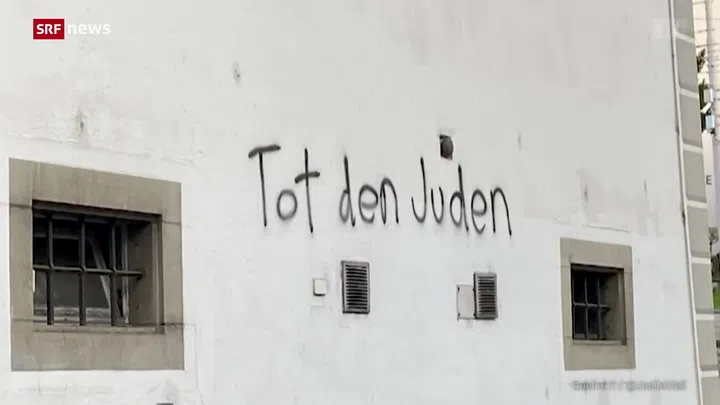 SRF news
Tot den Juden
E